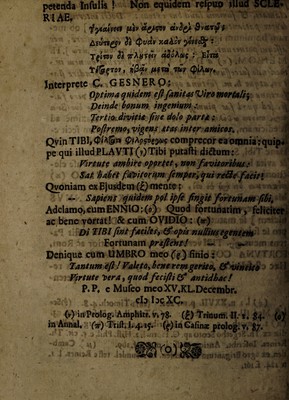 petenda Insulis! Non equidem reſpuo illud SCLE-
RIAE,
Ὑγιαίνειν μὲν ἄριστον ἀνδρὶ θνατῷ,
Δεύτερον δὲ φυὰν καλὸν γενέσθαι,
Τρίτον δὲ πλουτεῖν ἀδόλως, Εἶτα
Τέταρτον, ἡβᾶν μετὰ τῶν φίλων.
Interprete C. GESNERO:
Optima quidem eſt ſanitas Viro mortali;
Deinde bonum ingenium:
Tertio divitiæ ſine dolo partæ:
Poſtremo, vigens ætas inter amicos.
Qvin TIBI, comprecor ea omnia: quip-
pe qui illud PLAVTI (ν) Tibi putaſti dictum:
Virtute ambire oportet, non favitoribus:
Sat habet favitorum ſemper, qui recte facit;
Qvoniam ex Ejuſdem (ξ) mente:
Sapiens quidem pol ipſe fingit fortunam ſibi,
Adclamo, cum ENNIO: (ο) Quod fortunatim, feliciter
ac bene vortat! & cum OVIDIO: (π)
Di TIBI ſint faciles, & opis nullius egentem
Fortunam præſtent!
Denique cum UMBRO meo (ρ) finio:
Tantum eſt! Valete, bene rem gerite, & vincite
Virtute vera, quod feciſtis antidhac!
P. P. e Muſeo meo XV. KL. Decembr.
cIɔ Iɔc XC.
(ν) in Prolog. Amphitr. v. 78. (ξ) Trinum. II. 2. 84. (ο)
in Annal. (π) Triſt. I. 4. 15. (ρ) in Caſinæ prolog. v. 87.